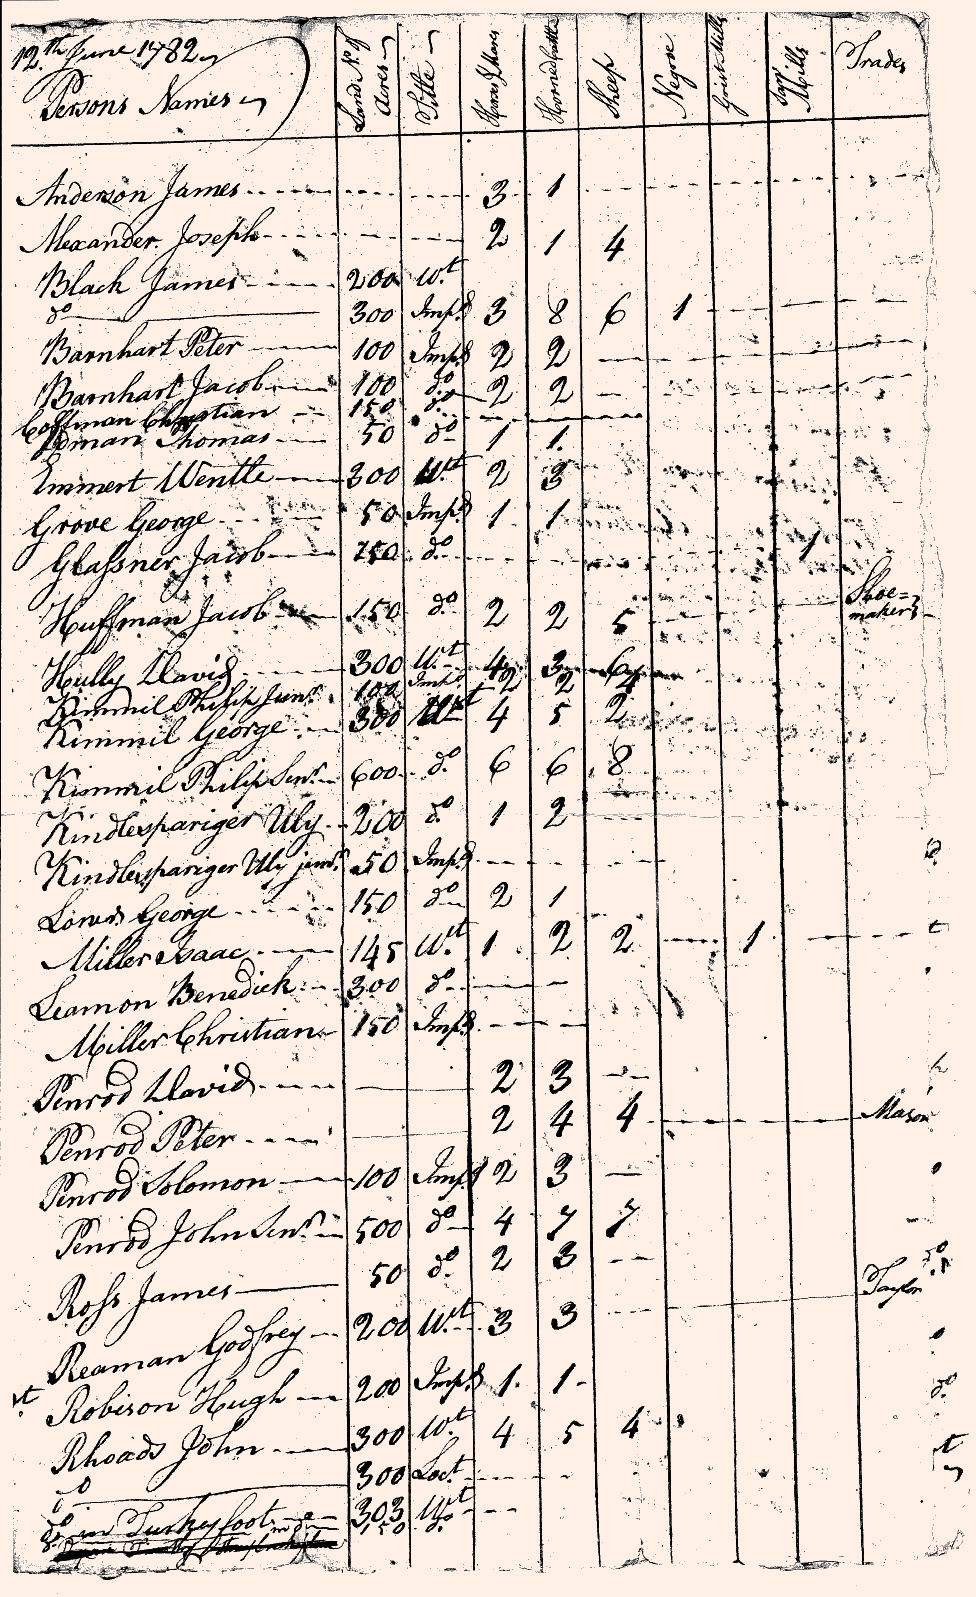 12th June 1782
Persons Names
Land No. of Acres
Title
Horses & Mares
Horned Cattle
Sheep
Negroe
Grist Mills
Saw Mills
Trades
Anderson James 3 1
Alexander Joseph 2 1 4
Black James 200 Wt
do 300 Impd 3 8 6 1
Barnhart Peter 100 Impd 2 2
Barnhart Jacob 100 do 2 2
Coffman Christian 150 do
Thomas 50 do 1 1
Emmert Wentle 300 Wt 2 3
Grove George 50 Impd 1 1
Glassner Jacob 250 do 1
Huffman Jacob 150 do 2 2 5 Shoe=maker
Hully David 300 Wt 4 3
Kimmil Philip Junr. 100 Impd 2 2
Kimmil George 300 Wt 4 5 2
Kimmil Philip Senr. 600 do 6 6 8
Kindlespariger Uly 200 do 1 2
Kindlespariger Uly junr. 50 Impd
George 150 do 2 1
Miller Isaac 145 Wt 1 2 2 1
Leamon Benedick 300 do
Miller Christian 150 Impd
Penrod David 2 3
Penrod Peter 2 4 4 Mason
Penrod Solomon 100 Impd 2 3
Penrod John Senr. 500 do 4 7 7
Ross James 50 do 2 3 Taylor
Reaman Godfrey 200 Wt 3 3
Robison Hugh 200 Impd 1 1
Rhoads John 300 Wt 4 5 4
do 300 Loct
do in Turkeyfoot 303 Wt
150 do